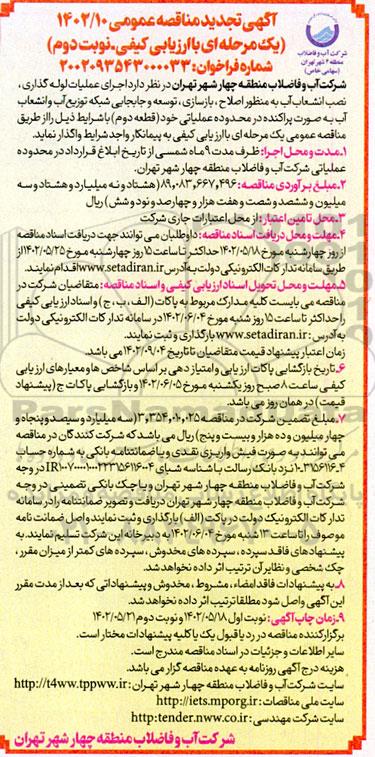 آگهی تجدید مناقصه عمومی ۱۴۰۲/۱۰
(یک مرحله ای با ارزیابی کیفی-نوبت دوم)
شماره فراخوان: ۲۰۰۲۰۹۳۵۴۳۰۰۰۰۳۳
شرکت آب و فاضلاب
منطقه ۴ شهر تهران
(سهامی خاص)
شرکت آب و فاضلاب منطقه چهار شهر تهران در نظر دارد اجرای عملیات لوله گذاری،
نصب انشعاب آب به منظور اصلاح، بازسازی، توسعه و جابجایی شبکه توزیع آب و انشعاب
آب به صورت پراکنده در محدوده عملیاتی خود (قطعه دوم) با شرایط ذیل را از طریق
مناقصه عمومی یک مرحله ای با ارزیابی کیفی به پیمانکار واجد شرایط واگذار نماید.
۱.مدت و محل اجرا: ظرف مدت ۹ ماه شمسی از تاریخ ابلاغ قرارداد در محدوده
عملیاتی شرکت آب و فاضلاب منطقه چهار شهر تهران.
۲.مبلغ برآوردی مناقصه: ۸۹,۰۸۳,۶۶۷,۴۹۶ (هشتاد و نه میلیارد و هشتاد و سه
میلیون و ششصد و شصت و هفت هزار و چهارصد و نود و شش) ریال
۳.محل تامین اعتبار: از محل اعتبارات جاری شرکت
۴.مهلت و محل دریافت اسناد مناقصه: داوطلبان می توانند جهت دریافت اسناد مناقصه
از روز چهارشنبه مورخ ۱۴۰۲/۰۵/۱۸ حداکثر تا ساعت ۱۵ روز چهارشنبه مورخ ۱۴۰۲/۰۵/۲۵ از
طریق سامانه تدارکات الکترونیکی دولت به آدرس www.setadiran.ir اقدام نمایند.
۵.مهلت و محل تحویل اسناد ارزیابی کیفی و اسناد مناقصه: متقاضیان شرکت در
مناقصه می بایست کلیه مدارک مربوط به پاکات (الف، ب، ج) و اسناد ارزیابی کیفی
را حداکثر تا ساعت ۱۵ روز شنبه مورخ ۱۴۰۲/۰۶/۰۴ در سامانه تدارکات الکترونیکی دولت
به آدرس: www.setadiran.ir بارگذاری و ثبت نمایند.
زمان اعتبار پیشنهاد قیمت متقاضیان تا تاریخ ۱۴۰۲/۰۹/۰۴ می باشد.
۶.تاریخ بازگشایی پاکات ارزیابی و امتیاز دهی بر اساس شاخص ها و معیارهای ارزیابی
کیفی ساعت ۸ صبح روز یکشنبه مورخ ۱۴۰۲/۰۶/۰۵ و بازگشایی پاکات ج (پیشنهاد
قیمت) در همان روز می باشد.
۷.مبلغ تضمین شرکت در مناقصه ۳,۳۵۴,۰۱۰,۰۲۵ (سه میلیارد و سیصد و پنجاه و
چهار میلیون و ده هزار و بیست و پنج) ریال می باشد که شرکت کنندگان در مناقصه
می توانند به صورت فیش واریزی نقدی و یا ضمانتنامه بانکی به شماره حساب
نزد بانک رسالت با شناسه شبای در وجه
شرکت آب و فاضلاب منطقه چهار شهر تهران و یا چک بانکی تضمینی در وجه
شرکت آب و فاضلاب منطقه چهار شهر تهران دریافت و تصویر ضمانتنامه را در سامانه
تدارکات الکترونیک دولت در پاکت (الف) بارگذاری و ثبت نمایند و اصل ضمانت نامه
موصوف را تا ساعت ۱۳ شنبه مورخ ۱۴۰۲/۰۶/۰۴ به دبیرخانه این شرکت تسلیم نمایند. به
پیشنهادهای فاقد سپرده، سپرده های مخدوش، سپرده های کمتر از میزان مقرر،
چک شخصی و نظایر آن ترتیب اثر داده نخواهد شد.
۸.به پیشنهادات فاقد امضاء، مشروط، مخدوش و پیشنهاداتی که بعد از مدت مقرر
این آگهی واصل شود مطلقا ترتیب اثر داده نخواهد شد.
۹.زمان چاپ آگهی: نوبت اول ۱۴۰۲/۰۵/۱۸ و نوبت دوم ۱۴۰۲/۰۵/۲۱
برگزار کننده مناقصه در رد یا قبول یک یا کلیه پیشنهادات مختار است.
سایر اطلاعات و جزئیات در اسناد مناقصه مندرج است.
هزینه درج آگهی روزنامه به عهده مناقصه گزار می باشد.
سایت شرکت آب و فاضلاب منطقه چهار شهر تهران: http://t4ww.tppww.ir
سایت ملی مناقصات: http://iets.mporg.ir
سایت شرکت مهندسی: http:tender.nww.co.ir
شرکت آب و فاضلاب منطقه چهار شهر تهران